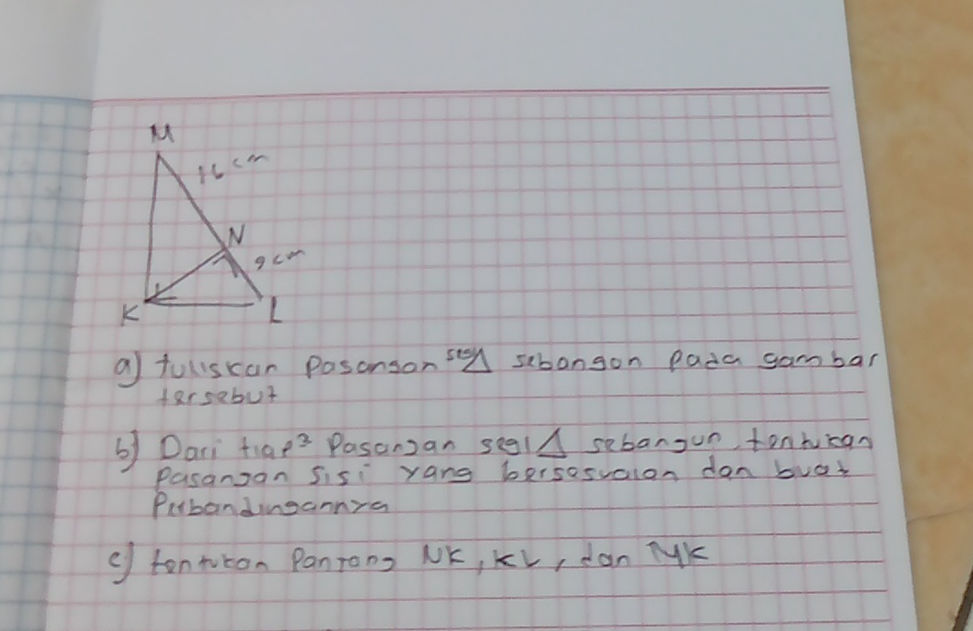 M
16 cm
N
9 cm
K
L
a) tuliskan Pasangan segi Δ sebangon pada gambar
tersebut
b) Dari tiap² Pasangan segi Δ sebangun, tentukan
Pasangan sisi yang bersesuaian dan buat
Perbandingannya
c) tentukan Panjang NK, KL, dan MK